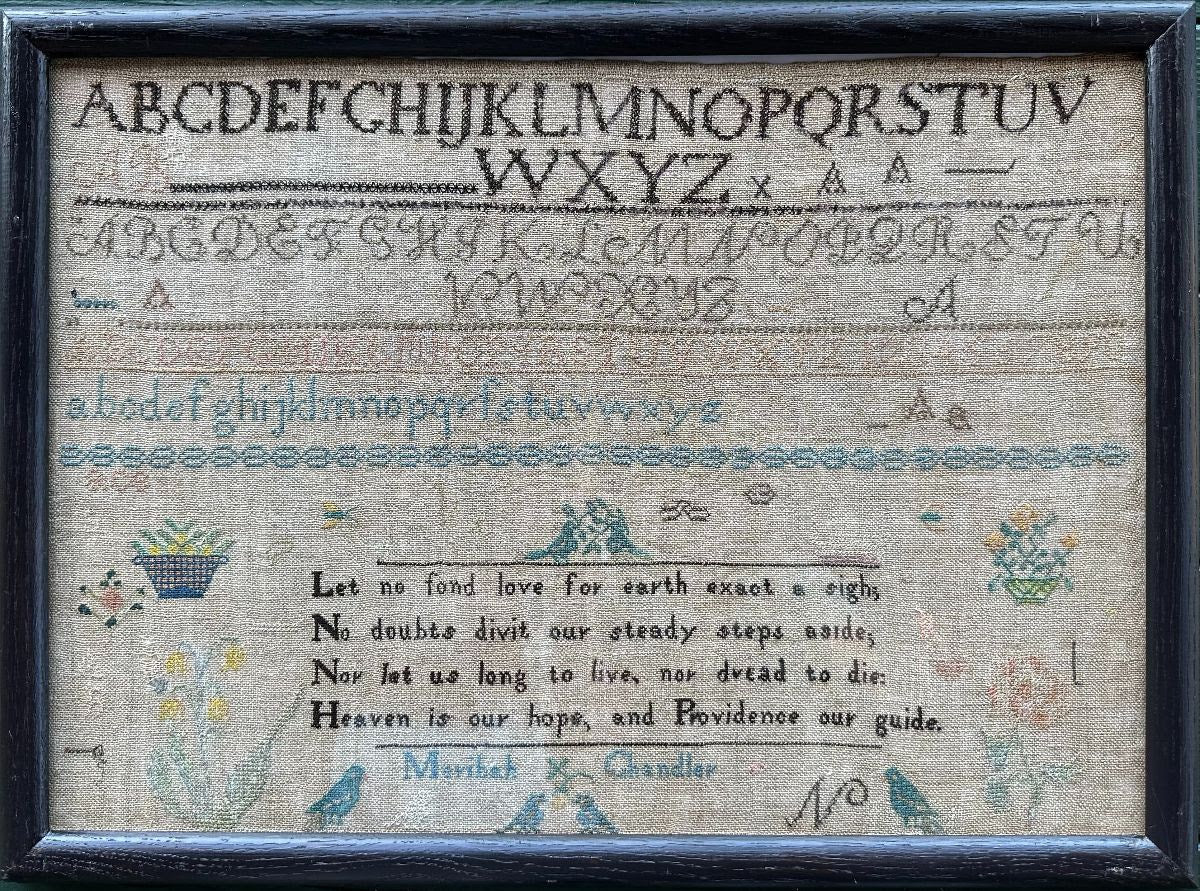 ABCDEFGHIJKLMNOPQRSTUV
WXYZ x A A
ABCDEFGHIJKLMNOPQRSTU
A VWXYZ A
abcdefghijklmnopqrſstuvwxyz A a
Let no fond love for earth exact a sigh,
No doubts divit our steady steps aside,
Nor let us long to live, nor dread to die:
Heaven is our hope, and Providence our guide.
Meribah X Chandler
N